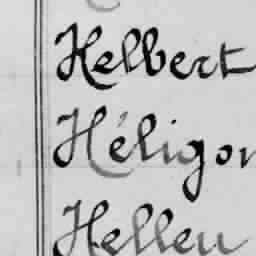 Helbert
Héligon
Helleu